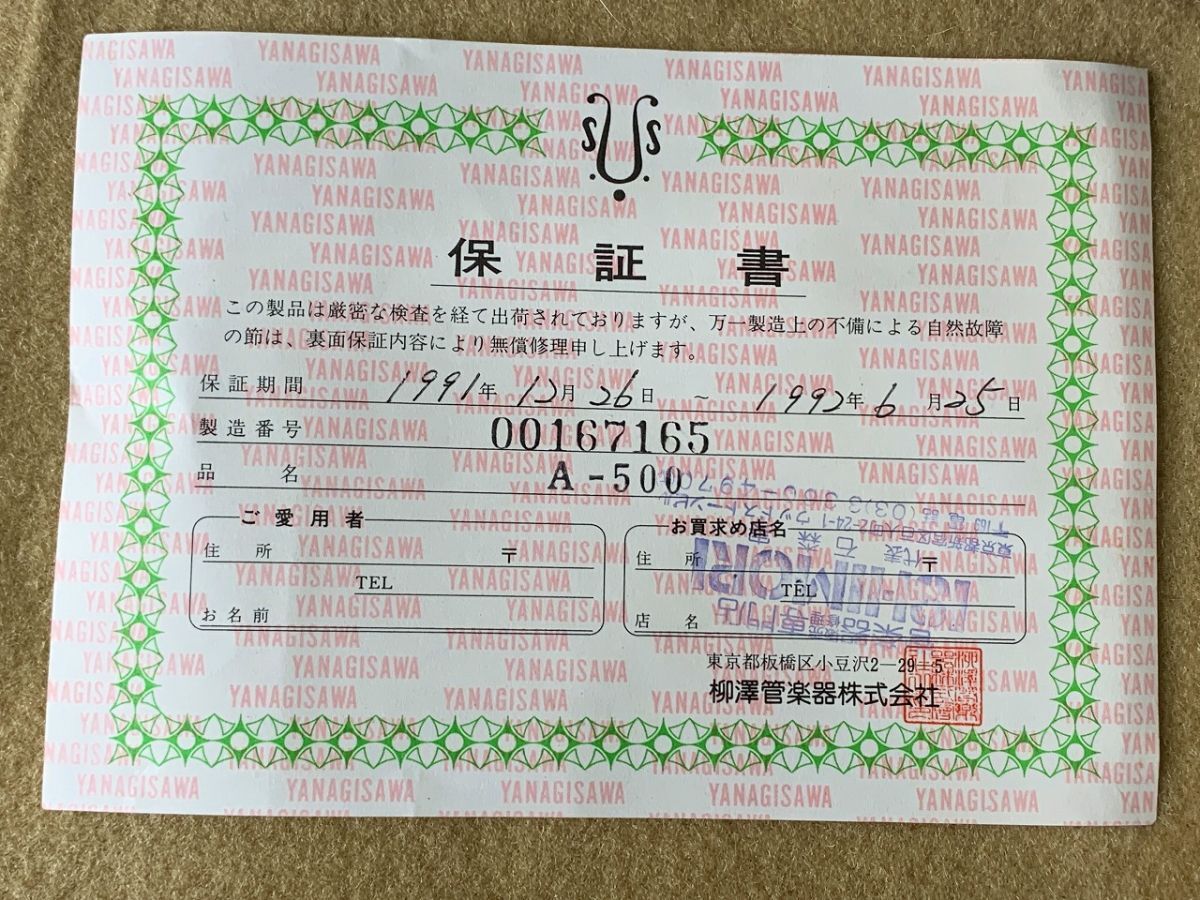 YANAGISAWA
S S
保証書
この製品は厳密な検査を経て出荷されておりますが、万一製造上の不備による自然故障
の節は、裏面保証内容により無償修理申し上げます。
保証期間 1991年 12月 26日 ~ 1992年 6月 25日
製造番号 00167165
品名 A-500
ご愛用者
住所 〒
TEL
お名前
お買求め店名
住所 〒
TEL
店名
ISHIMORI
代表 石森
東京都板橋区小豆沢2-29-5
柳澤管楽器株式会社